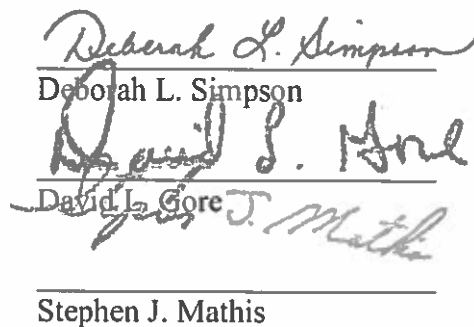 Deborah L. Simpson
Deborah L. Simpson
David L. Gore
David L. Gore
J. Mathis
Stephen J. Mathis